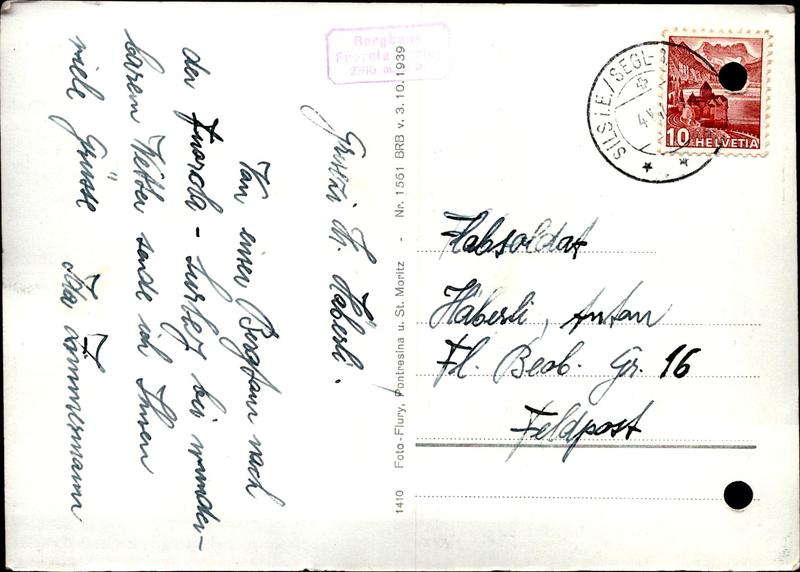 Grüezi Hr. Häberli.
Von einer Bergtour nach
der Fuorcla-Surlej bei wunder-
barem Wetter sende ich Ihnen
viele Grüsse Ida Zimmermann
Berghaus
Fuorcla Surlej
2760 m.
1410 Foto-Flury, Pontresina u. St. Moritz - Nr. 1561 BRB v. 3. 10. 1939
SILS i.E./SEGL
10 HELVETIA
Häbsoldat
Häberli, Anton
Fl. Beob. Gr. 16
Feldpost